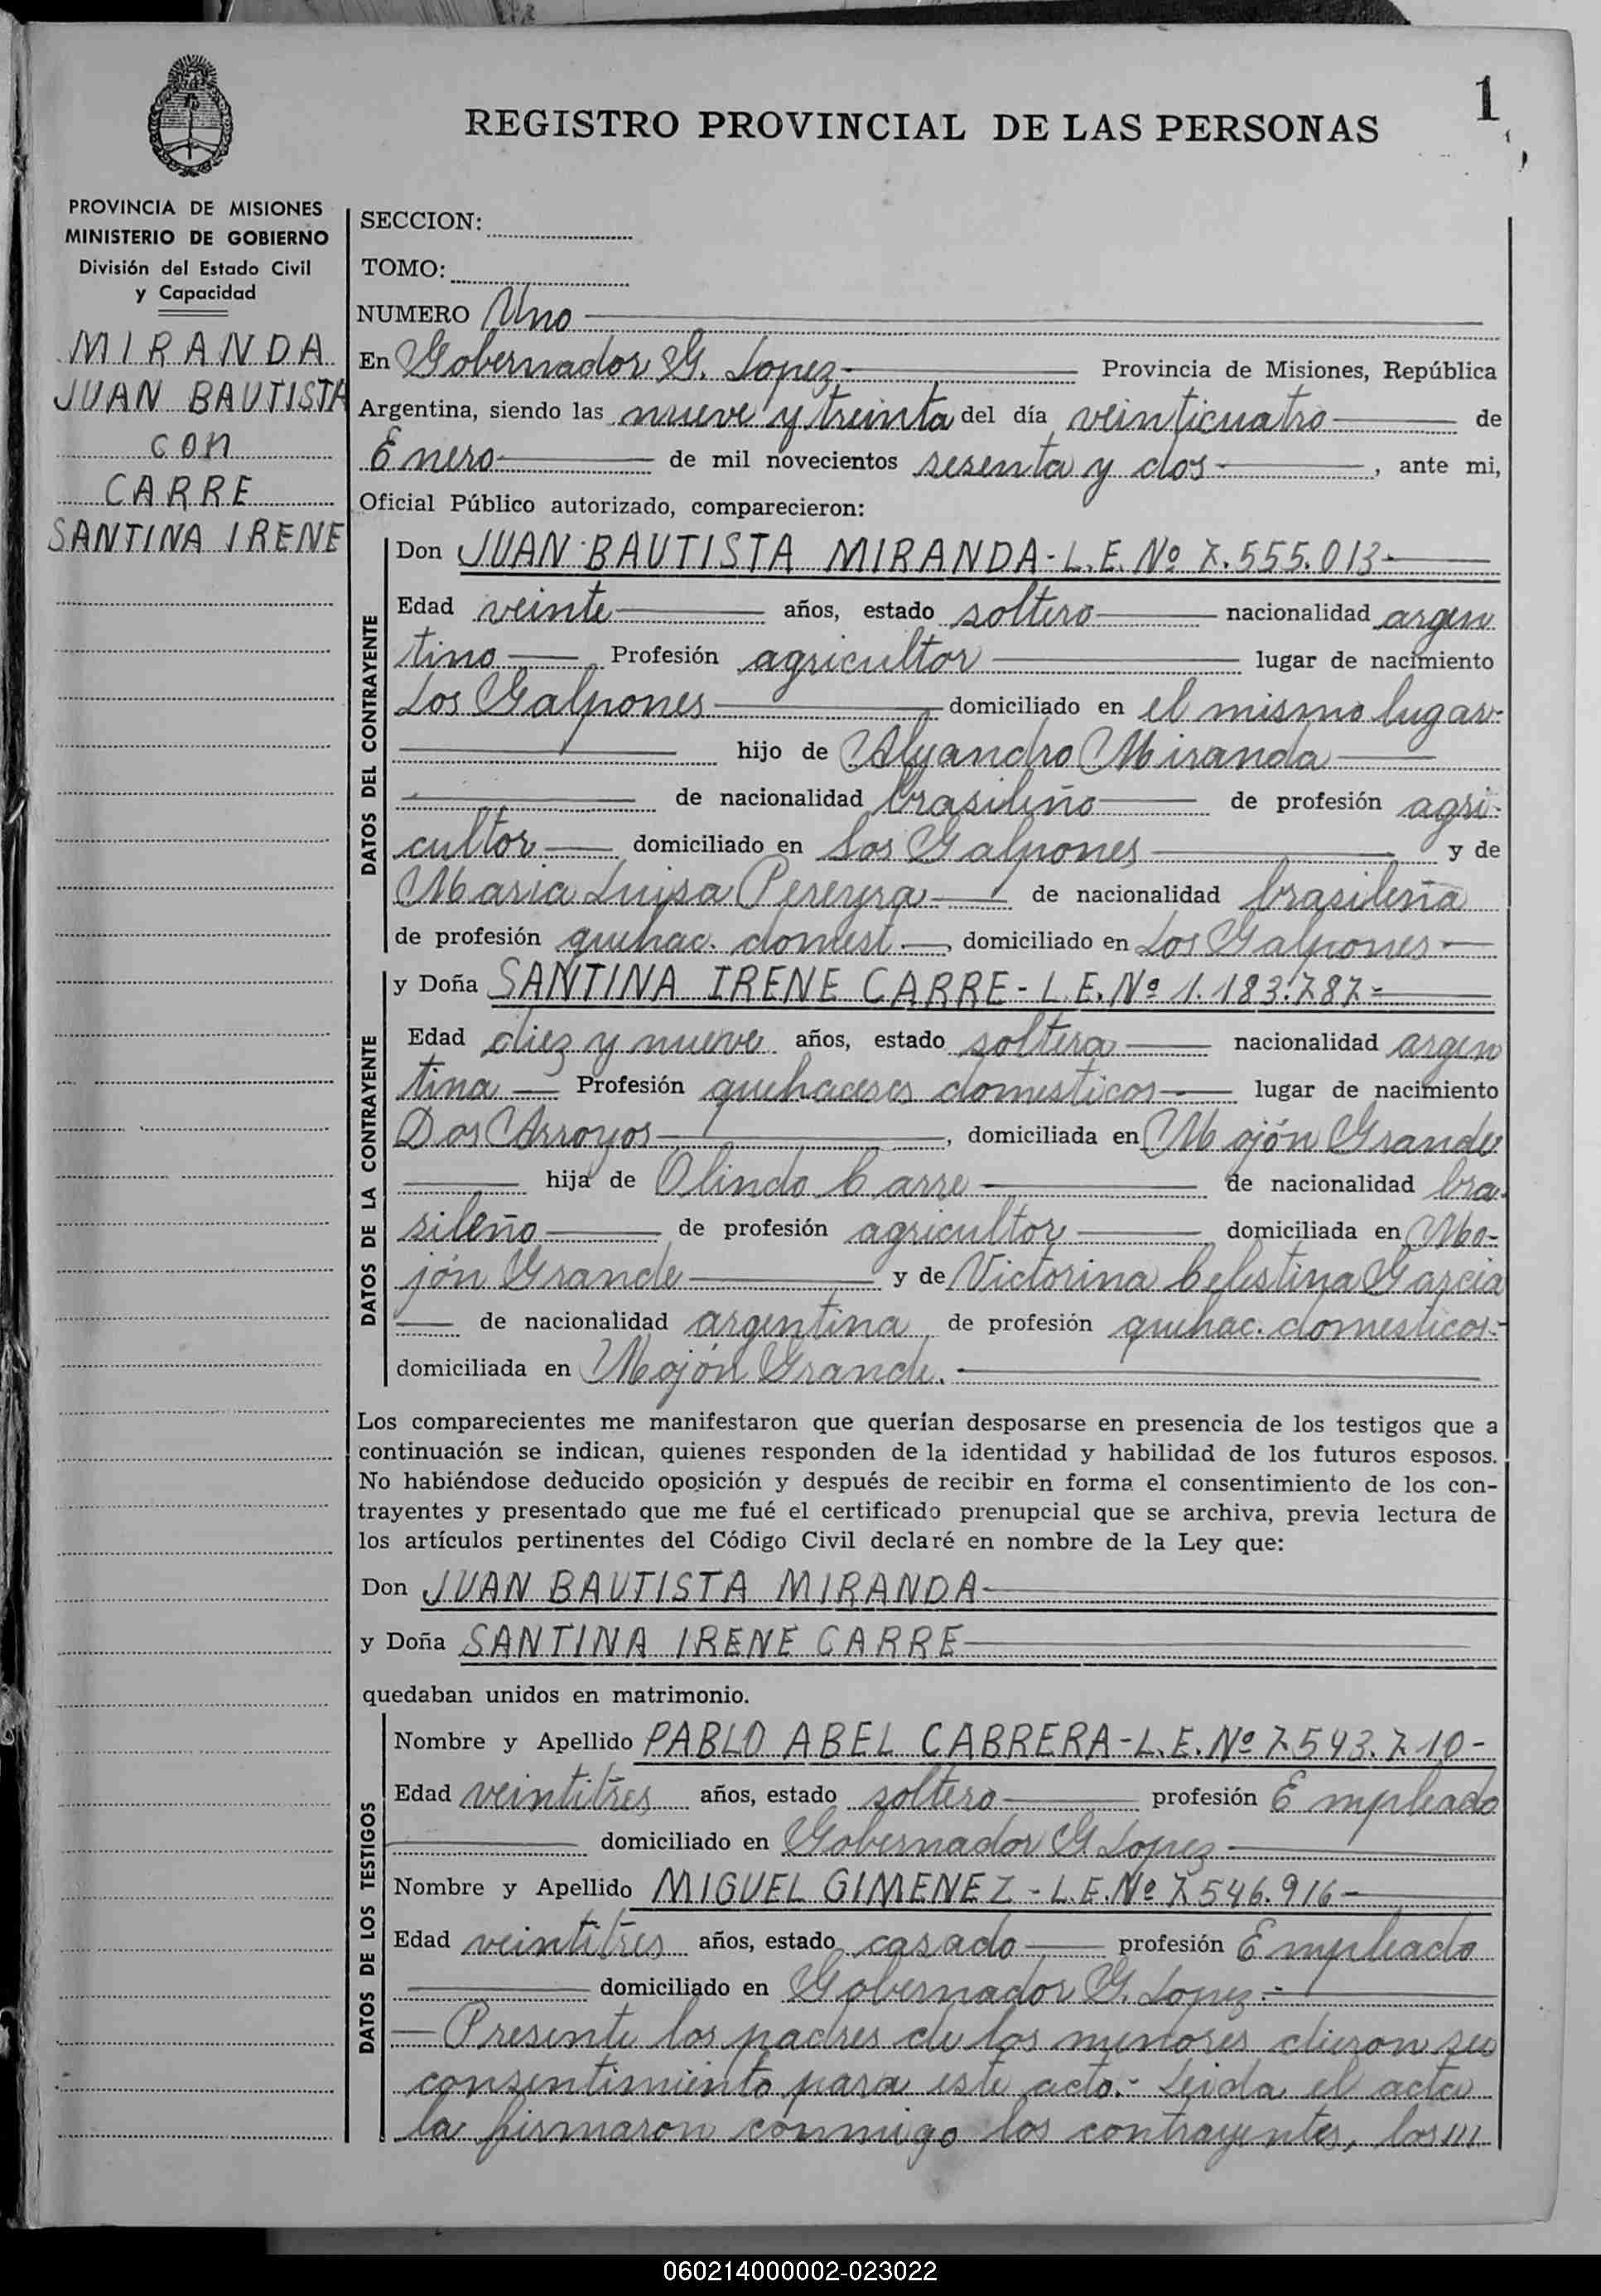 1
REGISTRO PROVINCIAL DE LAS PERSONAS
PROVINCIA DE MISIONES
MINISTERIO DE GOBIERNO
División del Estado Civil
y Capacidad
MIRANDA
JUAN BAUTISTA
CON
CARRE
SANTINA IRENE
SECCION:
TOMO:
NUMERO Uno
En Gobernador G. Lopez- Provincia de Misiones, República
Argentina, siendo las nueve y treinta del día veinticuatro de
Enero de mil novecientos sesenta y dos- , ante mi,
Oficial Público autorizado, comparecieron:
DATOS DEL CONTRAYENTE
Don JUAN BAUTISTA MIRANDA-L.E. Nº 7.555.013-
Edad veinte años, estado soltero nacionalidad argen
tino Profesión agricultor lugar de nacimiento
Los Galpones domiciliado en el mismo lugar-
hijo de Alejandro Miranda
de nacionalidad brasileño de profesión agri-
cultor domiciliado en Los Galpones y de
Maria Luisa Pereyra de nacionalidad brasileña
de profesión quehac. domest. , domiciliado en Los Galpones-
DATOS DE LA CONTRAYENTE
y Doña SANTINA IRENE CARRE-L.E. Nº 1.183.787-
Edad diez y nueve años, estado soltera nacionalidad argen
tina Profesión quehaceres domesticos- lugar de nacimiento
Dos Arroyos , domiciliada en Mojón Grande
hija de Olindo Carre de nacionalidad bra-
sileño de profesión agricultor domiciliada en Mo-
jón Grande y de Victorina Celestina Garcia
de nacionalidad argentina de profesión quehac. domesticos-
domiciliada en Mojón Grande.
Los comparecientes me manifestaron que querían desposarse en presencia de los testigos que a
continuación se indican, quienes responden de la identidad y habilidad de los futuros esposos.
No habiéndose deducido oposición y después de recibir en forma el consentimiento de los con-
trayentes y presentado que me fué el certificado prenupcial que se archiva, previa lectura de
los artículos pertinentes del Código Civil declaré en nombre de la Ley que:
Don JUAN BAUTISTA MIRANDA
y Doña SANTINA IRENE CARRE
quedaban unidos en matrimonio.
DATOS DE LOS TESTIGOS
Nombre y Apellido PABLO ABEL CABRERA-L.E. Nº 7.543.710-
Edad veintitres años, estado soltero profesión Empleado
domiciliado en Gobernador G Lopez
Nombre y Apellido MIGUEL GIMENEZ-L.E. Nº 7.546.916-
Edad veintitres años, estado casado profesión Empleado
domiciliado en Gobernador G. Lopez.-
Presente los padres de los menores dieron su
consentimiento para este acto.- Leida el acta
la firmaron conmigo los contrayentes, los ///
060214000002-023022